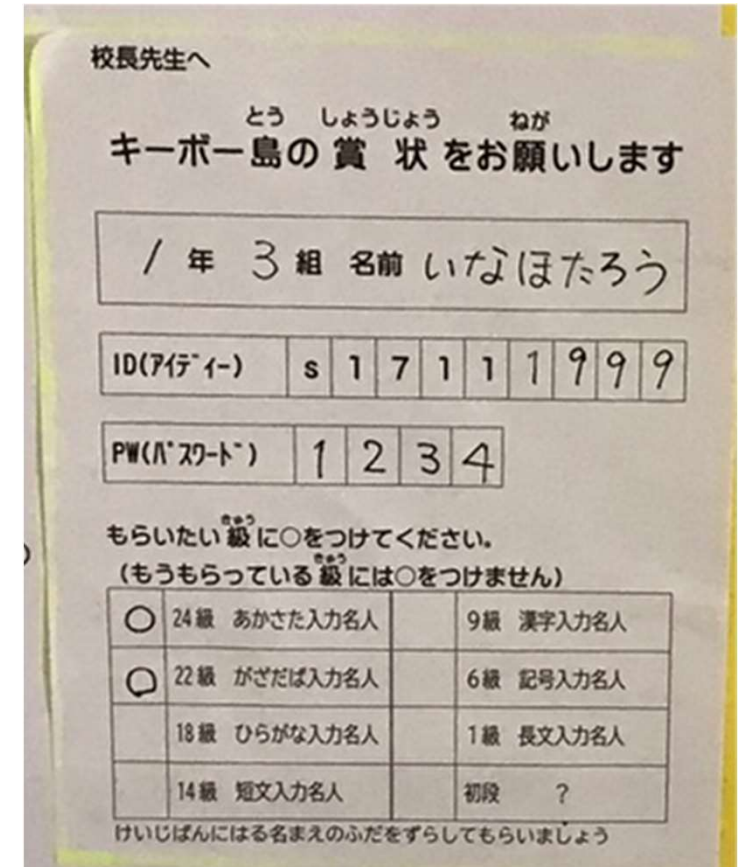 校長先生へ
とう しょうじょう ねが
キーボー島の賞状をお願いします
1年 3組 名前 いなほたろう
ID(アイディー) s 1 7 1 1 1 9 9 9
PW(パスワード) 1 2 3 4
きゅう
もらいたい級に○をつけてください。
きゅう
(もうもらっている級には○をつけません)
○ 24級 あかさた入力名人 9級 漢字入力名人
○ 22級 がざだば入力名人 6級 記号入力名人
18級 ひらがな入力名人 1級 長文入力名人
14級 短文入力名人 初段 ?
けいじばんにはる名まえのふだをずらしてもらいましょう